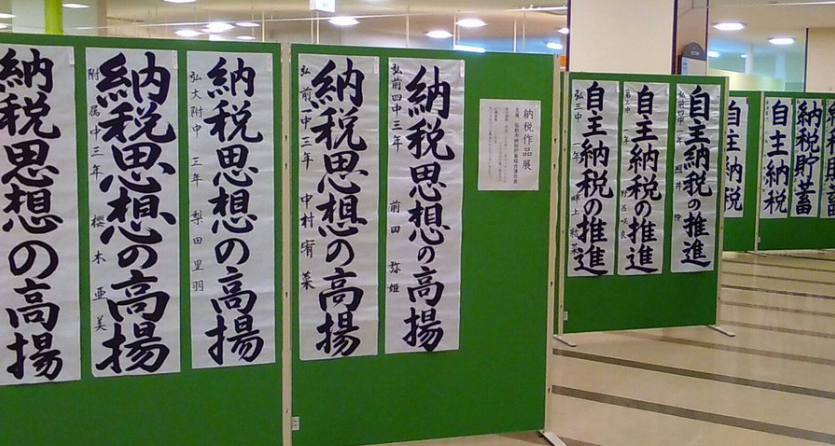 納税思想の高揚
納税思想の高揚
附属中三年 櫻木亜美
納税思想の高揚
弘大附中 三年 梨田里羽
納税思想の高揚
弘前一中三年 中村宥菜
納税思想の高揚
弘前四中三年 前田弥姫
納税作品展
自主納税の推進
弘三中 一年
自主納税の推進
自主納税の推進
弘前四中
自主納税
自主納税
納税貯蓄